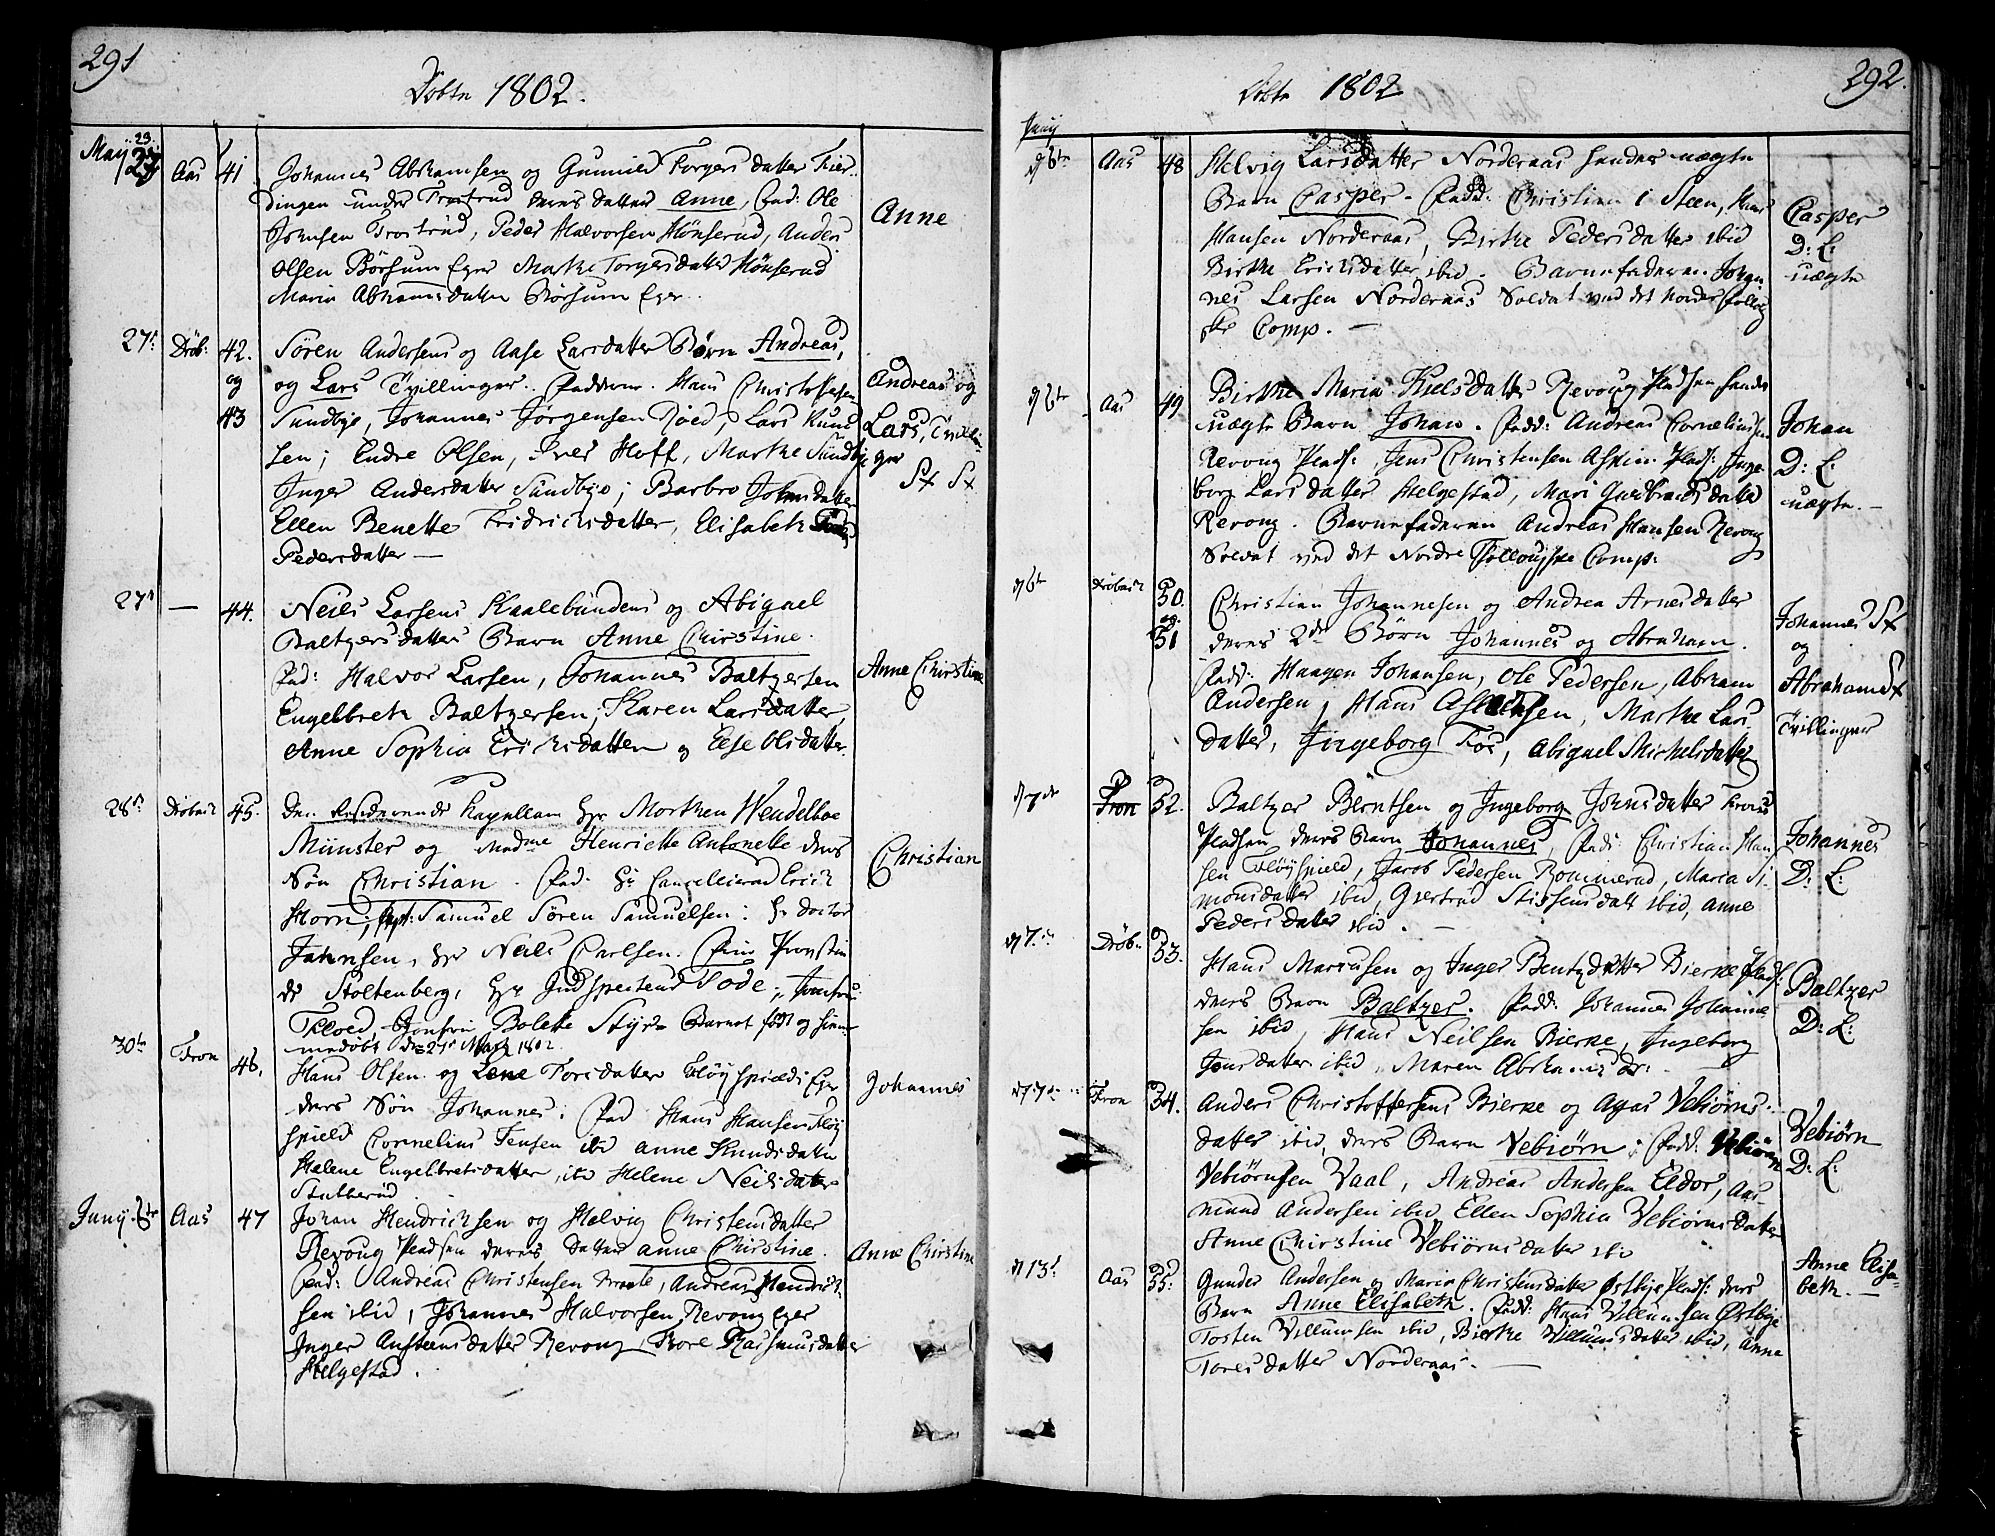 291
Döbte 1802.
May 23. 27
Aas 41 Johannes Abrahamsen og Gunnild Torgersdatter Fier-
dingen under Frostrud deres datter Anne, Fad: Ole
Johnsen Frostrud, Peder Halvorsen Hönserud, Anders
Olsen Börsum Eger Marthe Torgersdatter Hönserud
Maria Abrahamsdatter Börsum Eger.
Anne
27d Dröb: 42. Sören Andersens og Aase Larsdatter Börn Andreas,
og og Lars Tvillinger. Fadderne. Hans Christophersen
43 Sundbye, Johannes Jörgensen Röed, Lars Knud
sen; Endre Olsen, Iver Hoff, Marthe Sundbye
Inger Andersdatter Sundbye; Barbro Johnsdatter
Ellen Benette Fridrichsdatter, Elisabeth
Pedersdatter —
Andreas og
Lars, Tvillin
ger
27d — 44. Neils Larsens Skaalebundens og Abigael
Baltzersdatters Barn Anne Chirstine.
Fad: Halvor Larsen, Johannes Baltzersen
Engelbreth Baltzersen; Karen Larsdatter,
Anne Sophia Erichsdatter og Else Olsdatter.
Anne Chirstine
28d Dröbach 45. Den Residerende Kapellan Hr Morthen Wendelboe
Münster og Madme Henriette Antonette deres
Sön Christian. Fad. Hr Cancelieraad Erich
Horn; Samuel Sören Samuelsen: Hr Doctor
Jahnsen, Hr Neils Carlsen. Provstin
de Stoltenberg, Hr Indspecteur Tode; Jomfrue
Floed, Jomfru Bolette Styr Barnet födt og hiem-
medöbt d. 21d 1802.
Christian
30te Fron 46. Hans Olsen og Lene Torsdatter Flöyspield Eger
deres Sön Johannes. Fad Hans Hansen Flöy
spield Cornelius Jensen ibd Anne Knudsdatter
Helene Engelbretsdatter, ibd Helene Neilsdatter
Johannes
Juny. 6te Aas 47 Johan Hendrichsen og Helvig Christensdatter
Revoug Pladsen deres datter Anne Chirstine.
Fad: Andreas Christensen, Andreas Hendrich
sen ibid, Johannes Halvorsen Revoug Eger
Inger Austeensdatter Revoug, Tore Rasmusdatter
Helgestad.
Anne Chirstine
292.
Döbte 1802
Juny
d 6te Aas 48 Helvig Larsdatter Norderaas hendes uægte
Barn Casper. Fadd: Christian i Steen, Hans
Hansen Norderaas, Birthe Pedersdatter ibid
Birthe Erichsdatter ibid. Barnefaderen Johan
nes Larsen Norderaas Soldat ved det Nordre Follow
ske Comp. —
Casper
D: L:
uægte
d 6te Aas 49 Birthe Maria Nielsdatter Revoug Pladsen hendes
uægte Barn Johan. Fadd: Andreas Corneliussen
Revoug Plads:, Jens Christensen Askim Plads: Inge-
borg Larsdatter Helgestad, Mari Gudbrandsdatter
Revoug. Barnefaderen Andreas Hansen Revoug
Soldat ved det Nordre Follougske Comp:
Johan
D: L:
uægte. —
d 6te Dröbach 50. Christian Johannesen og Andrea Arnesdatter
og 51 deres 2de Börn Johannes og Abraham.
Fadd: Haagen Johansen, Ole Pedersen, Abraham
Andersen, Hans, Marthe Lars
datter, Ingeborg Fos, Abigael Michelsdatter
Johannes
og
Abraham
Tvillinger
d 7de Fron 52. Baltzer Berntsen og Ingeborg Johnsdatter Frons
Pladsen deres Barn Johannes, Fad: Christian Han
sen Flöyspield, Jacob Pedersen Rommerud, Maria Si-
monsdatter ibid, Giertrud Steffensdatt ibid, Anne
Pedersdatter ibid. —
Johannes
D: L:
d 7de Dröb. 53. Hans Marcusen og Inger Bentzdatter Bierke Plads:
deres Barn Baltzer. Fadd: Johannes Johanne
sen ibid, Hans Neilsen Bierke, Ingeborg
Jensdatter ibid, Maren Abrahamsdr. —
Baltzer
D: L:
d 7de Fron 54. Anders Christoffersens Bierke og Agas Vebiörns-
datter ibid, deres Barn Vebiörn; Fadd: Vebiörn
Vebiörnsen Vaal, Andreas Andersen Eldor, Aas-
mund Andersen ibid Ellen Sophia Vebiörnsdatter
Anne Chirstine Vebiörnsdatter ibid
Vebiörn
D: L:
d 13d Aas 55: Gunder Andersen og Maria Christensdatter Östbye Plads: deres
Barn Anne Elisabeth. Fadd: Hans Villumsen Östbye
Tosten Villumsen ibid, Birthe Villumsdatter ibid, Anne
Toresdatter Norderaas. —
Anne Elisa-
beth. —